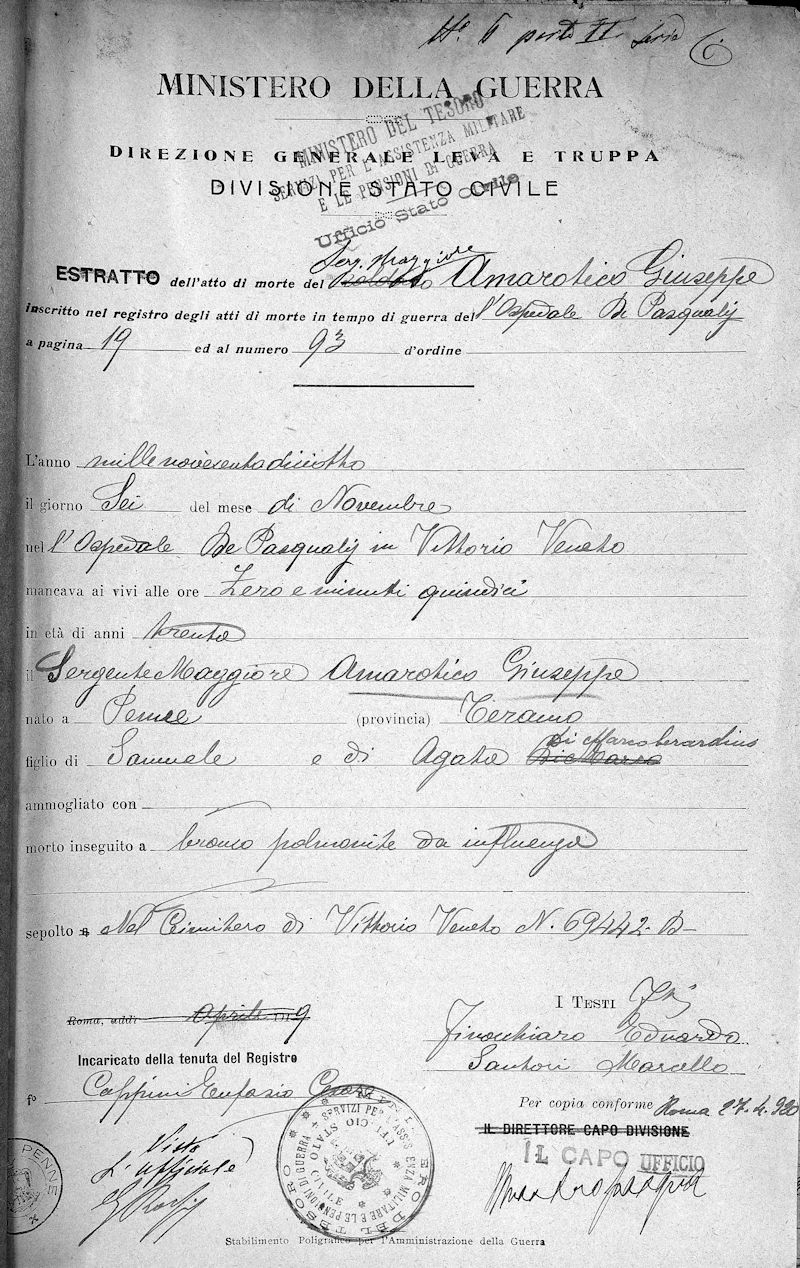 N. 6 parte II Serie C.
MINISTERO DELLA GUERRA
MINISTERO DEL TESORO
SERVIZI PER L'ASSISTENZA MILITARE
E LE PENSIONI DI GUERRA
Ufficio Stato Civile
DIREZIONE GENERALE LEVA E TRUPPA
DIVISIONE STATO CIVILE
Serg. Maggiore
ESTRATTO dell'atto di morte del soldato Amarotico Giuseppe
inscritto nel registro degli atti di morte in tempo di guerra del l'Ospedale De Pasqualij
a pagina 19 ed al numero 93 d'ordine
L'anno millenovecentodiciotto
il giorno Sei del mese di Novembre
nel l'Ospedale De Pasqualij in Vittorio Veneto
mancava ai vivi alle ore Zero e minuti quindici
in età di anni trenta
il Sergente Maggiore Amarotico Giuseppe
nato a Penne (provincia) Teramo
di Marcoberardino
figlio di Samuele e di Agata Di Marco
ammogliato con
morto inseguito a bronco polmonite da influenza
sepolto a Nel Cimitero di Vittorio Veneto N. 69442-B-
Roma, addì Aprile 1919
I TESTI
Finocchiaro Eduardo
Santori Marcello
Incaricato della tenuta del Registro
f° Cappini Eufasio Cesare
Per copia conforme Roma 27.4.920
IL DIRETTORE CAPO DIVISIONE
IL CAPO UFFICIO
Visto
L'ufficiale
MINISTERO DEL TESORO
SERVIZI PER L'ASSISTENZA MILITARE E LE PENSIONI DI GUERRA
UFFICIO STATO CIVILE
PENNE
Stabilimento Poligrafico per l'Amministrazione della Guerra